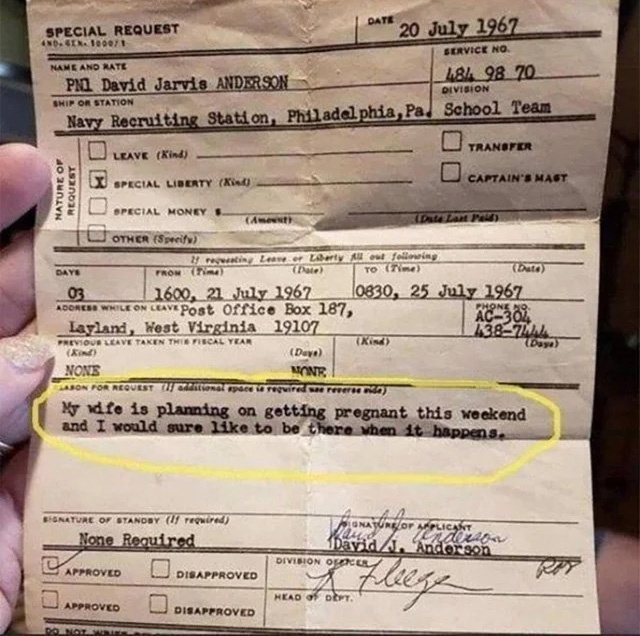 SPECIAL REQUEST
DATE 20 July 1967
SERVICE NO.
NAME AND RATE 484 98 70
PN1 David Jarvis ANDERSON DIVISION
SHIP OR STATION
Navy Recruiting Station, Philadelphia, Pa. School Team
NATURE OF REQUEST
LEAVE (Kind) TRANSFER
X SPECIAL LIBERTY (Kind) CAPTAIN'S MAST
SPECIAL MONEY $ (Amount) (Date Last Paid)
OTHER (Specify)
If requesting Leave or Liberty fill out following
DAYS FROM (Time) (Date) TO (Time) (Date)
03 1600, 21 July 1967 0830, 25 July 1967
ADDRESS WHILE ON LEAVE Post Office Box 187, PHONE NO.
AC-304
Layland, West Virginia 19107 438-7444
PREVIOUS LEAVE TAKEN THIS FISCAL YEAR
(Kind) (Days) (Kind) (Days)
NONE NONE
EASON FOR REQUEST (If additional space is required use reverse side)
My wife is planning on getting pregnant this weekend
and I would sure like to be there when it happens.
SIGNATURE OF STANDBY (If required) SIGNATURE OF APPLICANT
None Required David J. Anderson
APPROVED DISAPPROVED DIVISION OFFICER
APPROVED DISAPPROVED HEAD OF DEPT.
DO NOT WRITE